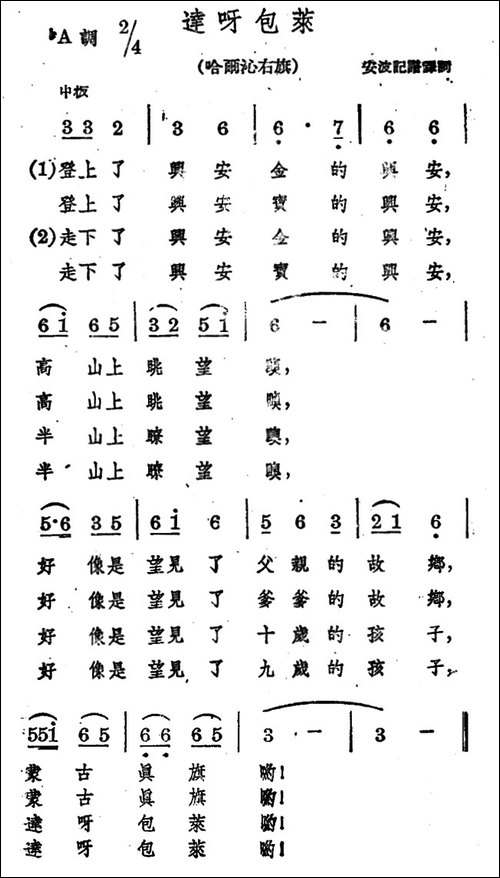 達呀包萊
♭A調 2/4
(哈爾沁右旗)
安波記譜譯詞
中板
3 3 2 | 3 6 | 6 · 7 | 6 6 |
(1)登上了 興安 金 的 興安,
登上了 興安 寶 的 興安,
(2)走下了 興安 金 的 興安,
走下了 興安 寶 的 興安,
6 i 6 5 | 3 2 5 i | 6 — | 6 — |
高 山上 眺 望 噢,
高 山上 眺 望 噢,
半 山上 瞭 望 噢,
半 山上 瞭 望 噢,
5·6 3 5 | 6 i 6 | 5 6 3 | 2 1 6 |
好 像是 望見 了 父 親 的 故 鄉,
好 像是 望見 了 爹 爹 的 故 鄉,
好 像是 望見 了 十 歲 的 孩 子,
好 像是 望見 了 九 歲 的 孩 子,
5 5 i 6 5 | 6 6 6 5 | 3 — | 3 — ‖
蒙 古 眞 旗 喲!
蒙 古 眞 旗 喲!
達 呀 包 萊 喲!
達 呀 包 萊 喲!